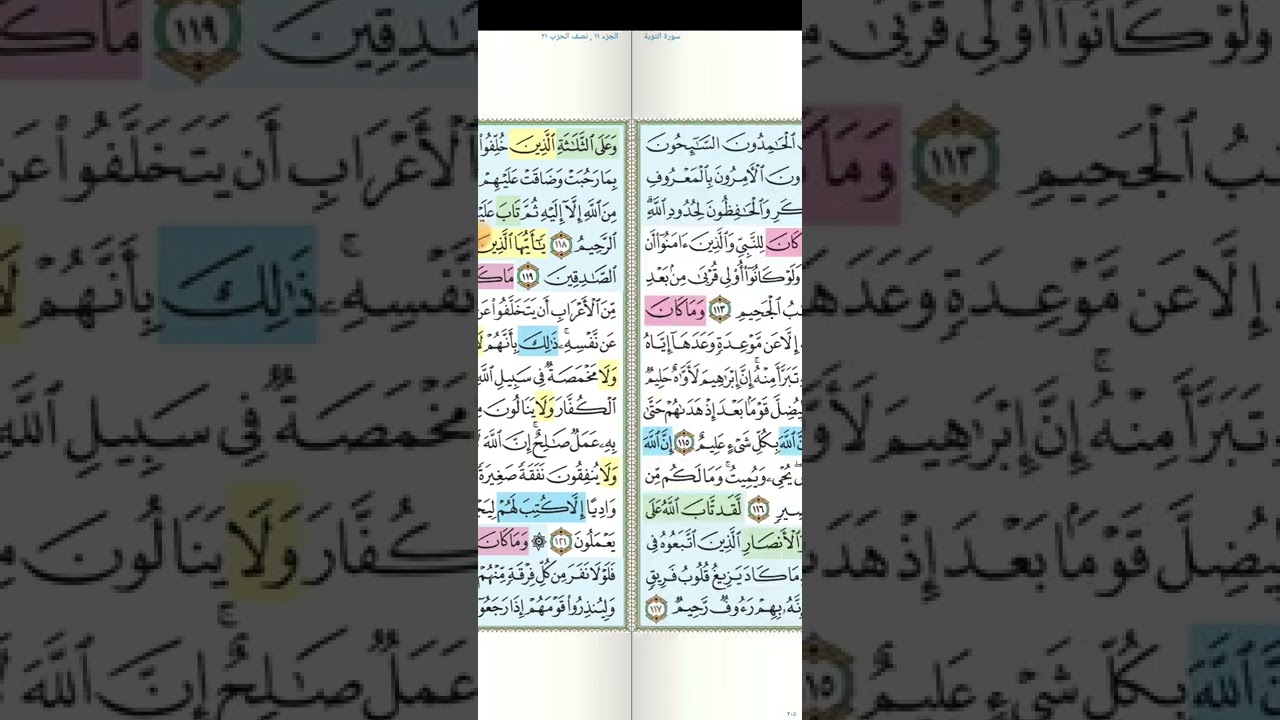 سورة التوبة
الْحَٰمِدُونَ السَّٰٓئِحُونَ
الْأٓمِرُونَ بِالْمَعْرُوفِ
وَالْحَٰفِظُونَ لِحُدُودِ اللَّهِ ۗ
كَانَ لِلنَّبِيِّ وَالَّذِينَ ءَامَنُوٓا۟ أَن
وَلَوْ كَانُوٓا۟ أُو۟لِى قُرْبَىٰ مِنۢ بَعْدِ
الْجَحِيمِ ١١٣ وَمَا كَانَ
إِلَّا عَن مَّوْعِدَةٍ وَعَدَهَآ إِيَّاهُ
تَبَرَّأَ مِنْهُ ۚ إِنَّ إِبْرَٰهِيمَ لَأَوَّٰهٌ حَلِيمٌ
لِيُضِلَّ قَوْمًۢا بَعْدَ إِذْ هَدَىٰهُمْ حَتَّىٰ
اللَّهَ بِكُلِّ شَىْءٍ عَلِيمٌ ١١٥ إِنَّ اللَّهَ
يُحْىِۦ وَيُمِيتُ ۚ وَمَا لَكُم مِّن
١١٦ لَّقَد تَّابَ اللَّهُ عَلَى
وَالْأَنصَارِ الَّذِينَ اتَّبَعُوهُ فِى
مَا كَادَ يَزِيغُ قُلُوبُ فَرِيقٍ
إِنَّهُۥ بِهِمْ رَءُوفٌ رَّحِيمٌ ١١٧
٢٠٥
الجزء ١١ , نصف الحزب ٢١
وَعَلَى الثَّلَٰثَةِ الَّذِينَ خُلِّفُوا۟
بِمَا رَحُبَتْ وَضَاقَتْ عَلَيْهِمْ
مِنَ اللَّهِ إِلَّآ إِلَيْهِ ثُمَّ تَابَ
الرَّحِيمُ ١١٨ يَٰٓأَيُّهَا الَّذِينَ
الصَّٰدِقِينَ ١١٩ مَا كَا
مِّنَ الْأَعْرَابِ أَن يَتَخَلَّفُوا۟ عَن
عَن نَّفْسِهِۦ ۚ ذَٰلِكَ بِأَنَّهُمْ لَا
وَلَا مَخْمَصَةٌ فِى سَبِيلِ اللَّهِ
الْكُفَّارَ وَلَا يَنَالُونَ مِنْ
بِهِۦ عَمَلٌ صَٰلِحٌ ۚ إِنَّ اللَّهَ لَا
وَلَا يُنفِقُونَ نَفَقَةً صَغِيرَةً
وَادِيًا إِلَّا كُتِبَ لَهُمْ
يَعْمَلُونَ ١٢١ ۞ وَمَا كَانَ
فَلَوْلَا نَفَرَ مِن كُلِّ فِرْقَةٍ مِّنْهُمْ
وَلِيُنذِرُوا۟ قَوْمَهُمْ إِذَا رَجَعُوٓا۟